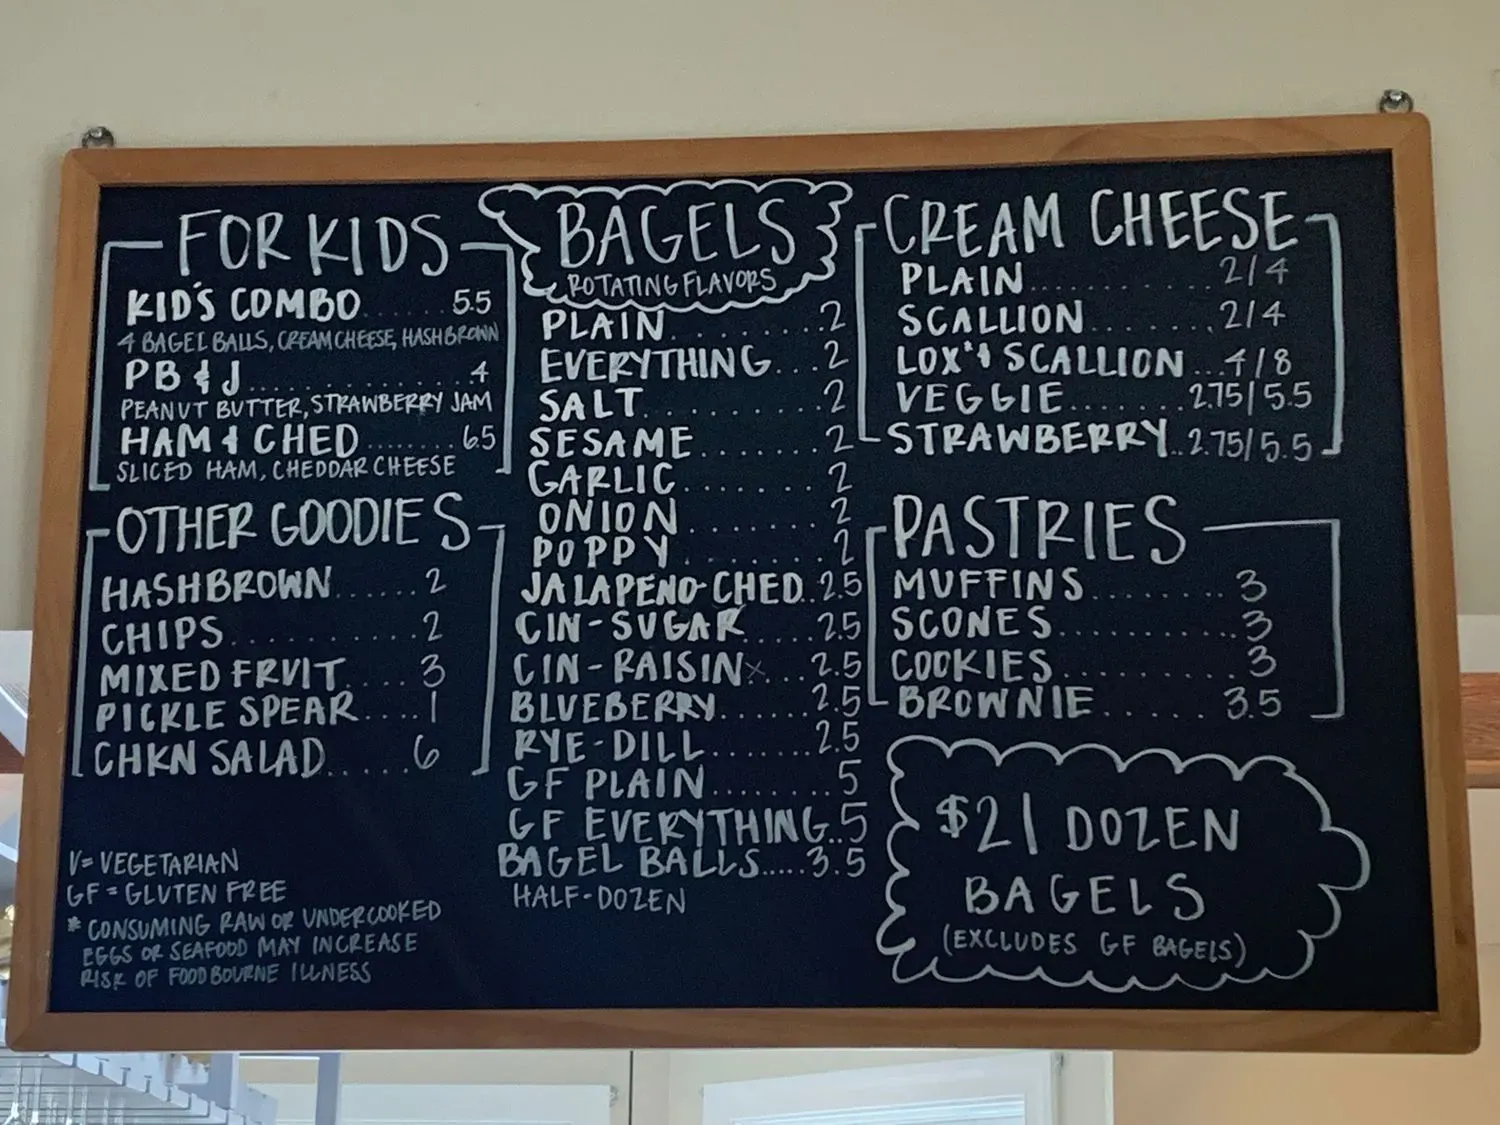 FOR KIDS
KID'S COMBO........5.5
4 BAGEL BALLS, CREAM CHEESE, HASHBROWN
PB & J..............4
PEANUT BUTTER, STRAWBERRY JAM
HAM & CHED........6.5
SLICED HAM, CHEDDAR CHEESE
OTHER GOODIES
HASHBROWN......2
CHIPS..........2
MIXED FRUIT....3
PICKLE SPEAR....1
CHKN SALAD.....6
V= VEGETARIAN
GF = GLUTEN FREE
* CONSUMING RAW OR UNDERCOOKED
EGGS OR SEAFOOD MAY INCREASE
RISK OF FOODBOURNE ILLNESS
BAGELS
ROTATING FLAVORS
PLAIN........2
EVERYTHING...2
SALT.........2
SESAME.......2
GARLIC.......2
ONION........2
POPPY........2
JALAPENO-CHED..2.5
CIN-SUGAR.....2.5
CIN-RAISIN....2.5
BLUEBERRY......2.5
RYE-DILL.......2.5
GF PLAIN........5
GF EVERYTHING..5
BAGEL BALLS.....3.5
HALF-DOZEN
CREAM CHEESE
PLAIN............2/4
SCALLION........2/4
LOX* & SCALLION...4/8
VEGGIE.......2.75/5.5
STRAWBERRY..2.75/5.5
PASTRIES
MUFFINS.........3
SCONES...........3
COOKIES..........3
BROWNIE......3.5
$21 DOZEN
BAGELS
(EXCLUDES GF BAGELS)